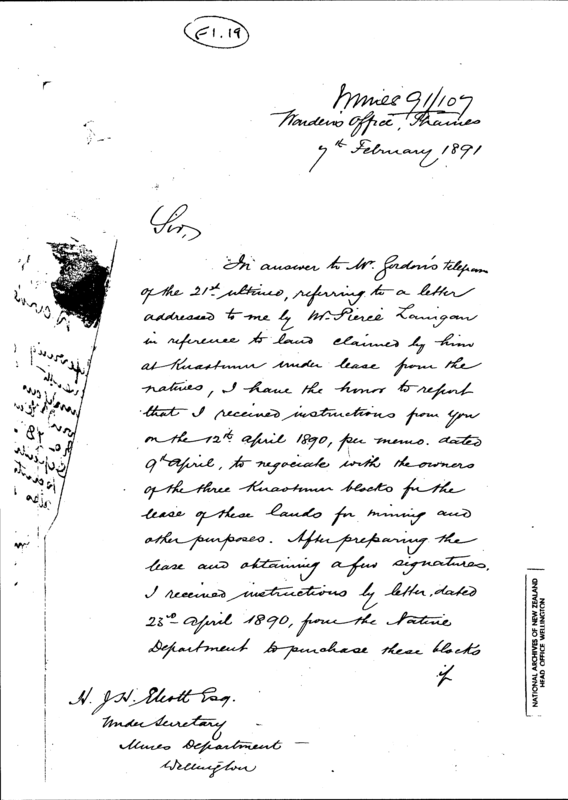 F1.19
Mines 91/107
Warden's Office, Thames
7th February 1891
Sir,
In answer to Mr. Gordon's telegram
of the 21st ultimo, referring to a letter
addressed to me by Mr. Pierce Lanigan
in reference to land claimed by him
at Kuaotunu under lease from the
natives, I have the honor to report
that I received instructions from you
on the 12th April 1890, per memo. dated
9th April, to negociate with the owners
of the three Kuaotunu blocks for the
lease of these lands for mining and
other purposes. After preparing the
lease and obtaining a few signatures,
I received instructions by letter, dated
23rd April 1890, from the Native
Department to purchase these blocks
if
H. J. H. Eliott Esq.
Under Secretary
Mines Department —
Wellington
NATIONAL ARCHIVES OF NEW ZEALAND
HEAD OFFICE WELLINGTON